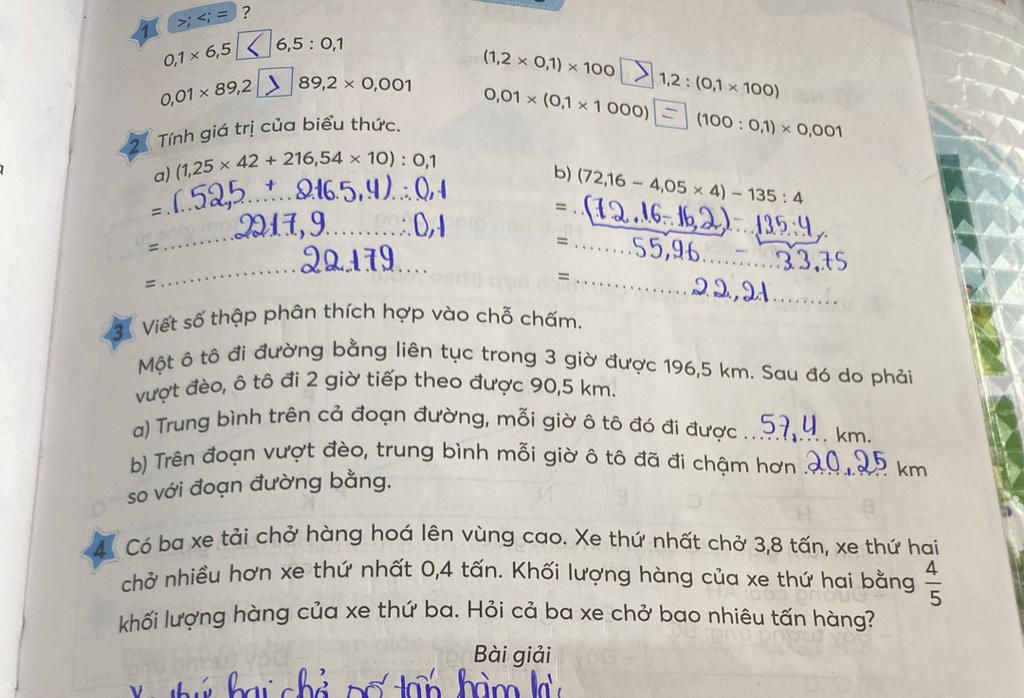 1 >; <; = ?
0,1 × 6,5 < 6,5 : 0,1
(1,2 × 0,1) × 100 > 1,2 : (0,1 × 100)
0,01 × 89,2 > 89,2 × 0,001
0,01 × (0,1 × 1 000) = (100 : 0,1) × 0,001
2 Tính giá trị của biểu thức.
a) (1,25 × 42 + 216,54 × 10) : 0,1
= (52,5 + 2165,4) : 0,1
= 2217,9 : 0,1
= 22179
b) (72,16 – 4,05 × 4) – 135 : 4
= (72,16 – 16,2) – 135 : 4
= 55,96 – 33,75
= 22,21
3 Viết số thập phân thích hợp vào chỗ chấm.
Một ô tô đi đường bằng liên tục trong 3 giờ được 196,5 km. Sau đó do phải
vượt đèo, ô tô đi 2 giờ tiếp theo được 90,5 km.
a) Trung bình trên cả đoạn đường, mỗi giờ ô tô đó đi được 57,4 km.
b) Trên đoạn vượt đèo, trung bình mỗi giờ ô tô đã đi chậm hơn 20,25 km
so với đoạn đường bằng.
4 Có ba xe tải chở hàng hoá lên vùng cao. Xe thứ nhất chở 3,8 tấn, xe thứ hai
chở nhiều hơn xe thứ nhất 0,4 tấn. Khối lượng hàng của xe thứ hai bằng 4/5
khối lượng hàng của xe thứ ba. Hỏi cả ba xe chở bao nhiêu tấn hàng?
Bài giải
thứ hai chở số tấn hàng là: